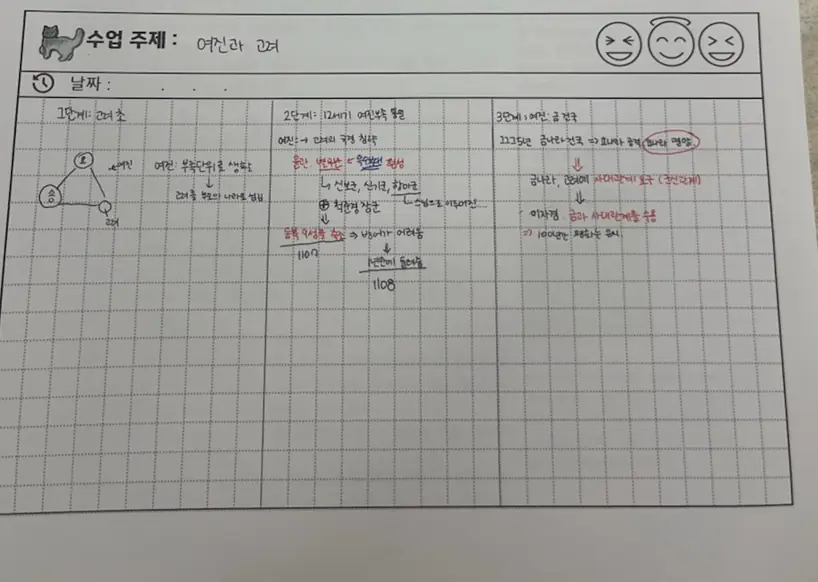 수업 주제 : 여진과 고려
날짜 : . . .
1단계: 고려 초
요
여진
송
고려
여진: 부족단위로 생활
↓
고려를 부모의 나라로 섬김
2단계: 12세기 여진부족 통일
여진: → 고려의 국경 침략
윤관 별무반 편성
↳ 신보군, 신기군, 항마군
↳ 승병으로 이루어진...
⊕ 척준경 장군
↓
동북 9성을 축조 ⇒ 방어가 어려움
1107
↓
1년만에 돌려줌
1108
3단계: 여진: 금 건국
금나라 건국 ⇒ 요나라 공격, 요나라 멸망
⇓
금나라, 고려에 사대관계 요구 (군신관계)
↓
이자겸: 금과 사대관계를 수용
⇒ 100년간 평화는 유지